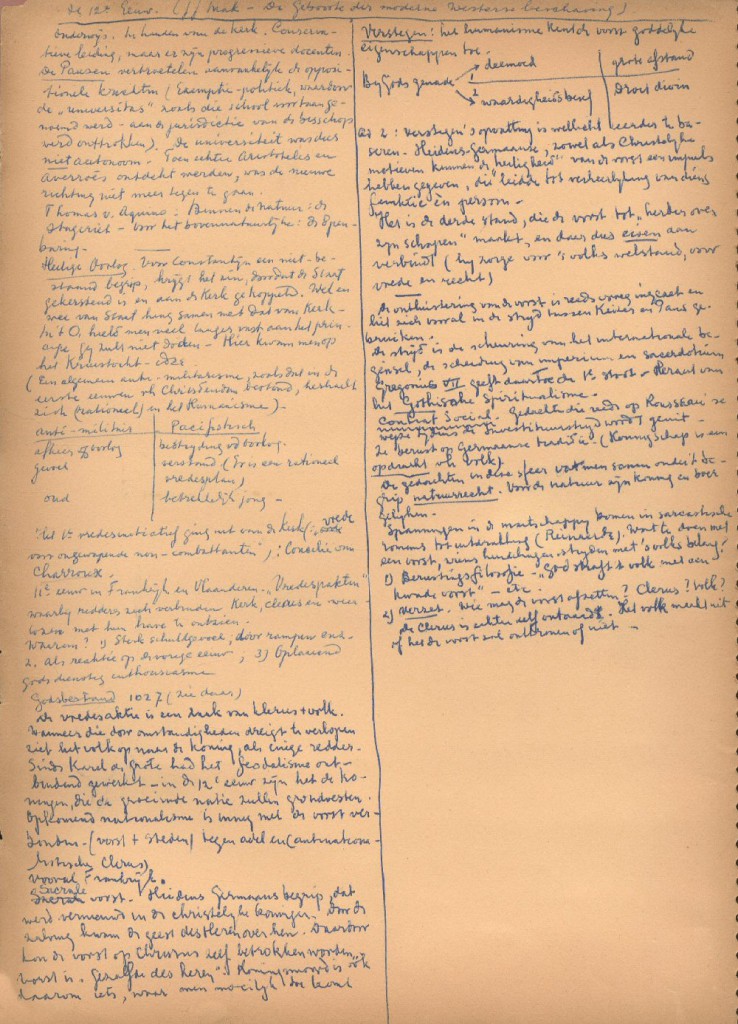 De 12e Eeuw. (J.J. Mak - De Geboorte der moderne Westerse beschaving)
Onderwijs. In handen van de Kerk. Conserva-
tieve leiding, maar er zijn progressieve docenten.
De Pausen vertroetelen aanvankelijk de opposi-
tionele krachten (Exemptie-politiek, waardoor
de "universitas" zoals die school voortaan ge-
noemd werd - aan de jurisdictie van de bisschop
werd onttrokken). De universiteit was dus
niet autonoom. Toen echter Aristoteles en
Averroës ontdekt werden, was de nieuwe
richting niet meer tegen te gaan.
Thomas v. Aquino: Binnen de natuur: de
Stagiriet - voor het bovennatuurlijke: de Open-
baring.
Heilige Oorlog. Voor Constantijn een niet be-
staand begrip, krijgt het zin, doordat de Staat
gekerstend is en aan de Kerk gekoppeld. Wel en
wee van Staat hing samen met dat van Kerk -
In 't O. hield men veel langer vast aan het prin-
cipe (gij zult niet doden - Hier kwam men op
het Kruistocht-idee.
(Een algemeen anti-militarisme, zoals dat in de
eerste eeuwen v/h Christendom bestond, herhaalt
zich (rationeel) in het Humanisme) -
anti-militair | Pacifistisch
afkeer v oorlog | bestrijding v d oorlog
gevoel | verstand (Er is een rationeel
vredesplan)
oud | betrekkelijk jong -
Het 1e vredesinitiatief ging uit van de Kerk: "vrede
voor ongewapende non-combattanten"; Concilie van
Charroux.
11e eeuw in Frankrijk en Vlaanderen. "Vredespakten"
waarbij ridders zich verbinden Kerk, clerus en weer-
lozen met hun have te ontzien.
Waarom? 1) Sterk schuldgevoel, door rampen enz.
2. als reaktie op de vorige eeuw; 3) Oplaaiend
godsdienstig enthousiasme
Godsbestand 1027 (zie daar)
De vredesaktie is een zaak van klerus + volk.
Wanneer die door omstandigheden dreigt te verlopen
ziet het volk op naar de koning, als enige redder.
Sinds Karel de Grote had het feodalisme ont-
bindend gewerkt - in de 12e eeuw zijn het de ko-
ningen, die de geseinde natie zullen grondvesten.
Opkomend nationalisme is innig met de vorst ver-
bonden - (vorst + steden) tegen adel en (antinationa-
listische clerus)
vooral Frankrijk.
Sacrale vorst - Heidens Germaans begrip, dat
werd vermengd in de christelijke koningen. Door de
zalving kwam de geest des Heren over hen. Daardoor
kon de vorst op Christus zelf betrokken worden.
Vorst is "Gezalfde des heren". Koningsmoord is ook
daarom iets, waar men moeilijk toe komt
Verstegen: het humanisme kent de vorst goddelijke
eigenschappen toe.
Bij Gods genade 1 deemoed | grote afstand
2 waardigheidsbesef | Droit divin
Ad 2: Verstegen's opvatting is wellicht eerder te ba-
seren - Heidens-Germaanse, zowel als Christelijke
motieven kunnen de "heiligheid" van de vorst een impuls
hebben gegeven, die leidde tot verheerlijking van diens
funktie èn persoon -
Het is de derde stand, die de vorst tot "herder over
zijn schapen" maakt, en daar dus eisen aan
verbindt (hij zorge voor 's volks welstand, voor
vrede en recht)
De ontluistering van de vorst is reeds vroeg ingezet en
liet zich vooral in de strijd tussen Keizer en Paus ge-
bruiken.
De strijd is de scheuring van het internationale be-
ginsel, de scheiding van imperium en sacerdotium
Gregorius VII geeft daartoe de 1e stoot - Heraut van
het Gothische Spiritualisme.
Contrat Social. Gedachte die reeds op Rousseau se
wijze tijdens de Investituurstrijd wordt geuit -
Ze berust op Germaanse traditie - (Koningschap is een
opdracht v/h volk).
De gedachten in deze sfeer vat men samen onder 't be-
grip natuurrecht. Voor de natuur zijn koning en boer
gelijken -
Spanningen in de maatschappij komen in sarcastische
romans tot uitdrukking (Reinaerde). Wat te doen met
een vorst, wiens handelingen strijden met 's volks belang?
1) Berustingsfilosofie - "God straft 't volk met een
kwade vorst" - etc.
2) Verzet. Wie mag de vorst afzetten? Clerus? Volk?
De Clerus is echter zelf ontaard. Het volk maakt uit
of het de vorst zal onttronen of niet -